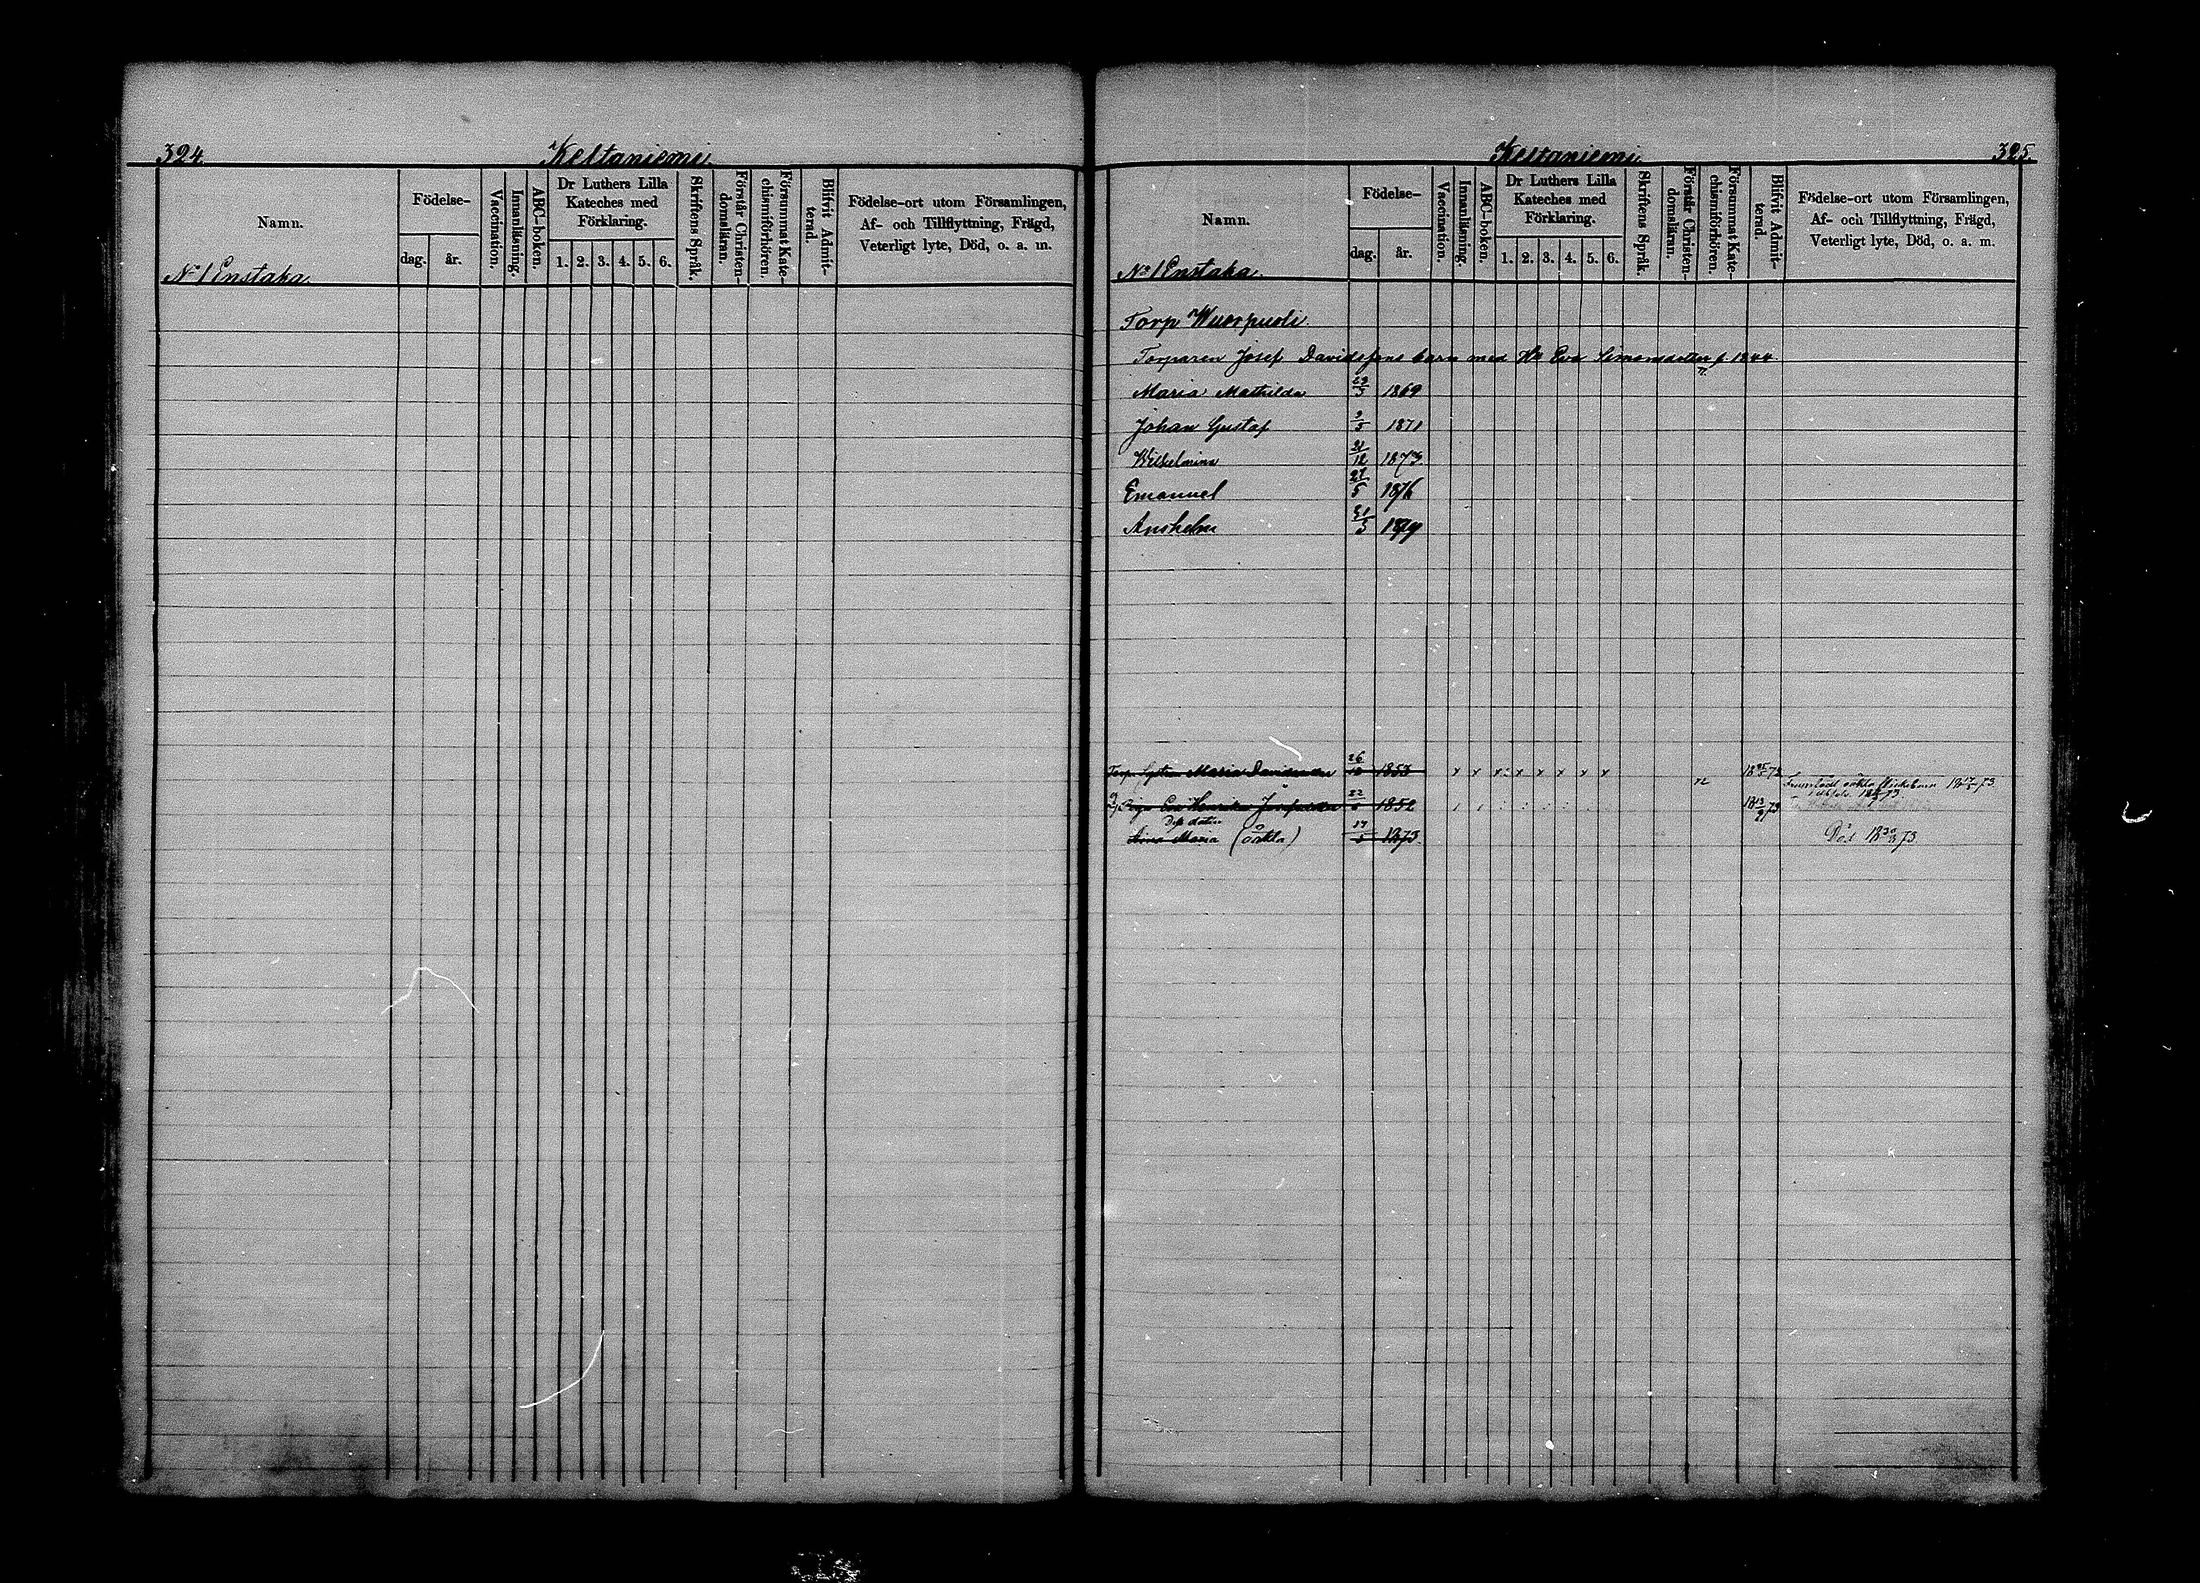 324.
Keltaniemi
Namn.
Födelse-
dag.
år.
Vaccination.
Innanläsning.
ABC-boken.
Dr Luthers Lilla
Kateches med
Förklaring.
1. 2. 3. 4. 5. 6.
Skriftens Språk.
Förstår Christen-
domsläran.
Försummat Kate-
chismiförhören.
Blifvit Admit-
terad.
Födelse-ort utom Församlingen,
Af- och Tillflyttning, Frägd,
Veterligt lyte, Död, o. a. m.
No 1 Enstaka.
Keltaniemi
325.
Namn.
Födelse-
dag.
år.
Vaccination.
Innanläsning.
ABC-boken.
Dr Luthers Lilla
Kateches med
Förklaring.
1. 2. 3. 4. 5. 6.
Skriftens Språk.
Förstår Christen-
domsläran.
Försummat Kate-
chismiförhören.
Blifvit Admit-
terad.
Födelse-ort utom Församlingen,
Af- och Tillflyttning, Frägd,
Veterligt lyte, Död, o. a. m.
No 1 Enstaka.
Torp
Torparen Josef Davidssons barn med Eva Simonsdotter f. 1844
Maria Mathilda 29/5 1869
Johan Gustaf 3/5 1871
Wilhelmina 1873
Emanuel 27/5 1876
Anshelm 31/5 1879
Maria Davidsdr 26/12 1853 x x x x x x x x
Eva Henrika Josefsdr 22 1852
Dess dotter
Anna Maria (oäkta) 17/5 1873. Död 73